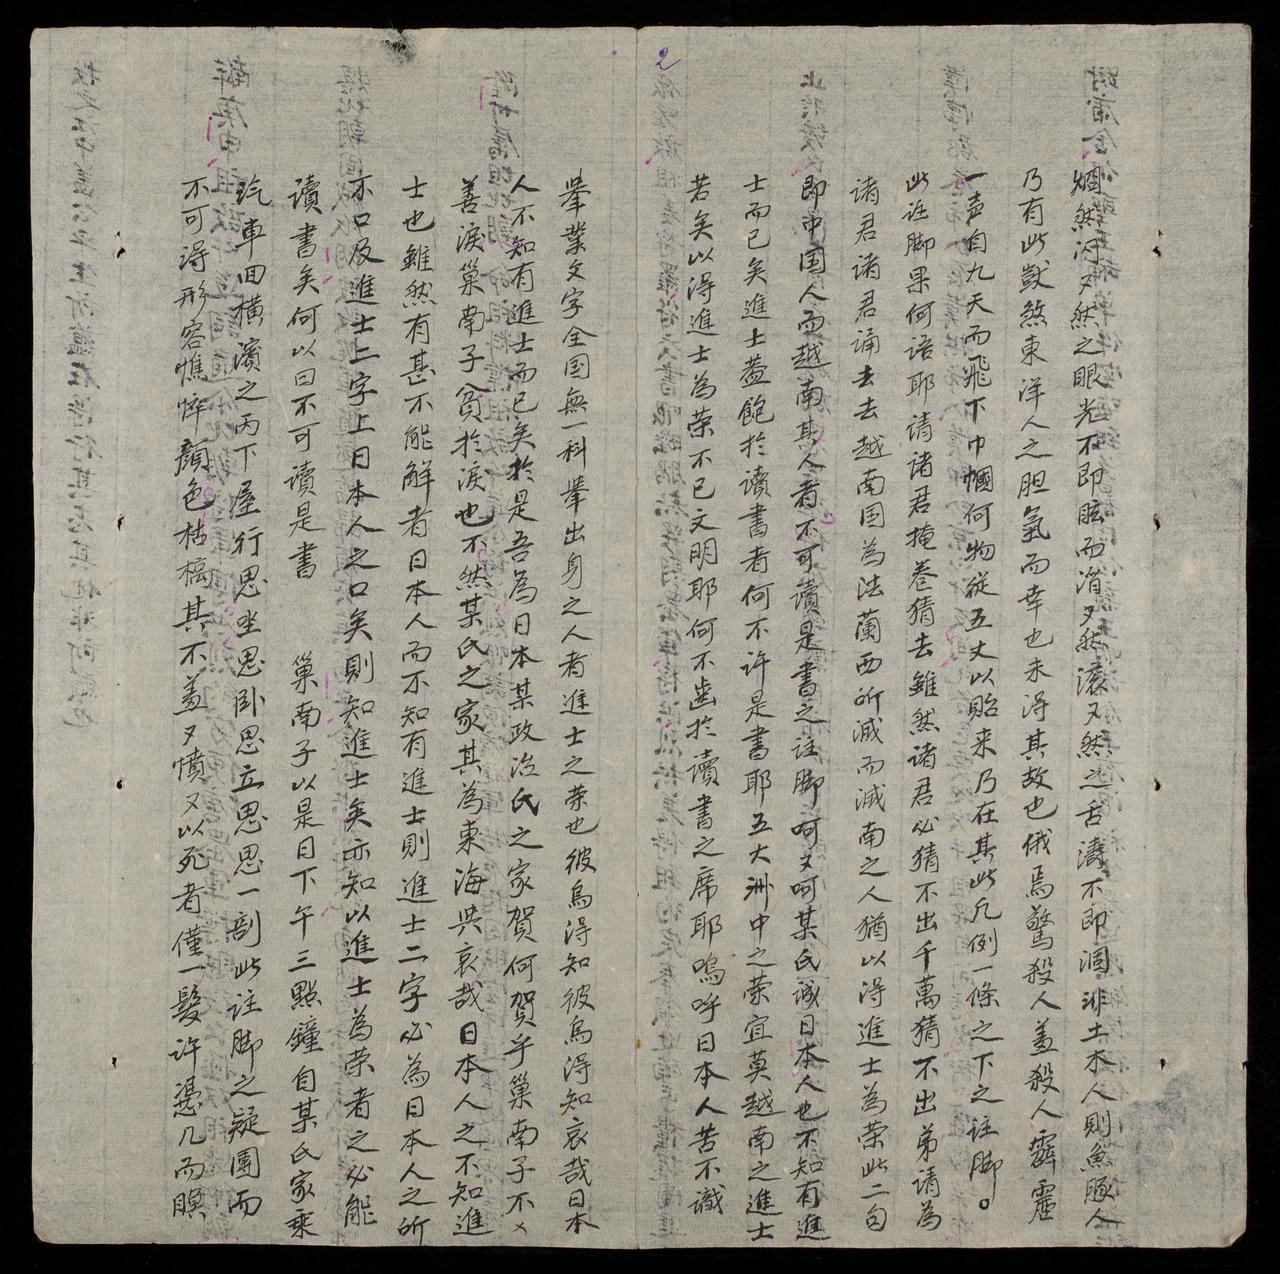 2
烱然河又然之眼光不即眩而滑又然滚又然之舌濤不即涸非土木人則魚豚人
乃有此獃煞東洋人之胆氣而幸也未得其故也俄焉驚殺人羞殺人霹靂
一声自九天而飛下巾幗何物從五丈以貽来乃在其此凡例一條之下之註脚。
此註脚果何語耶请諸君掩卷猜去雖然诸君必猜不出千萬猜不出弟请為
诸君诸君诵去去越南国為法蘭西所滅而滅南之人猶以得進士為荣此二句
即中国人而越南其人者不可读是書之註脚呵又呵某氏诚日本人也不知有進
士而已矣進士蓋飽於读書者何不许是書耶五大洲中之荣宜莫越南之進士
若矣以得進士為荣不已文明耶何不齒於讀書之席耶嗚呼日本人苦不識
舉業文字全国無一科舉出身之人者進士之荣也彼烏得知彼烏得知哀哉日本
人不知有進士而已矣於是吾為日本某政治氏之家賀何賀乎巢南子不
善淚巢南子貧於淚也不然某氏之家其為東海吳哀哉日本人之不知進
士也雖然有甚不能解者日本人而不知有進士則進士二字必為日本人之所
不口及進士二字上日本人之口矣則知進士矣亦知以進士為荣者之必能
讀書矣何以曰不可讀是書 巢南子以是日下午三點鐘自某氏家乘
汽車回横濱之丙下屋行思坐思卧思立思思思一剖此註脚之疑團而
不可得形容憔悴顏色枯槁其不羞又憤又以死者僅一髮许憑几而瞑